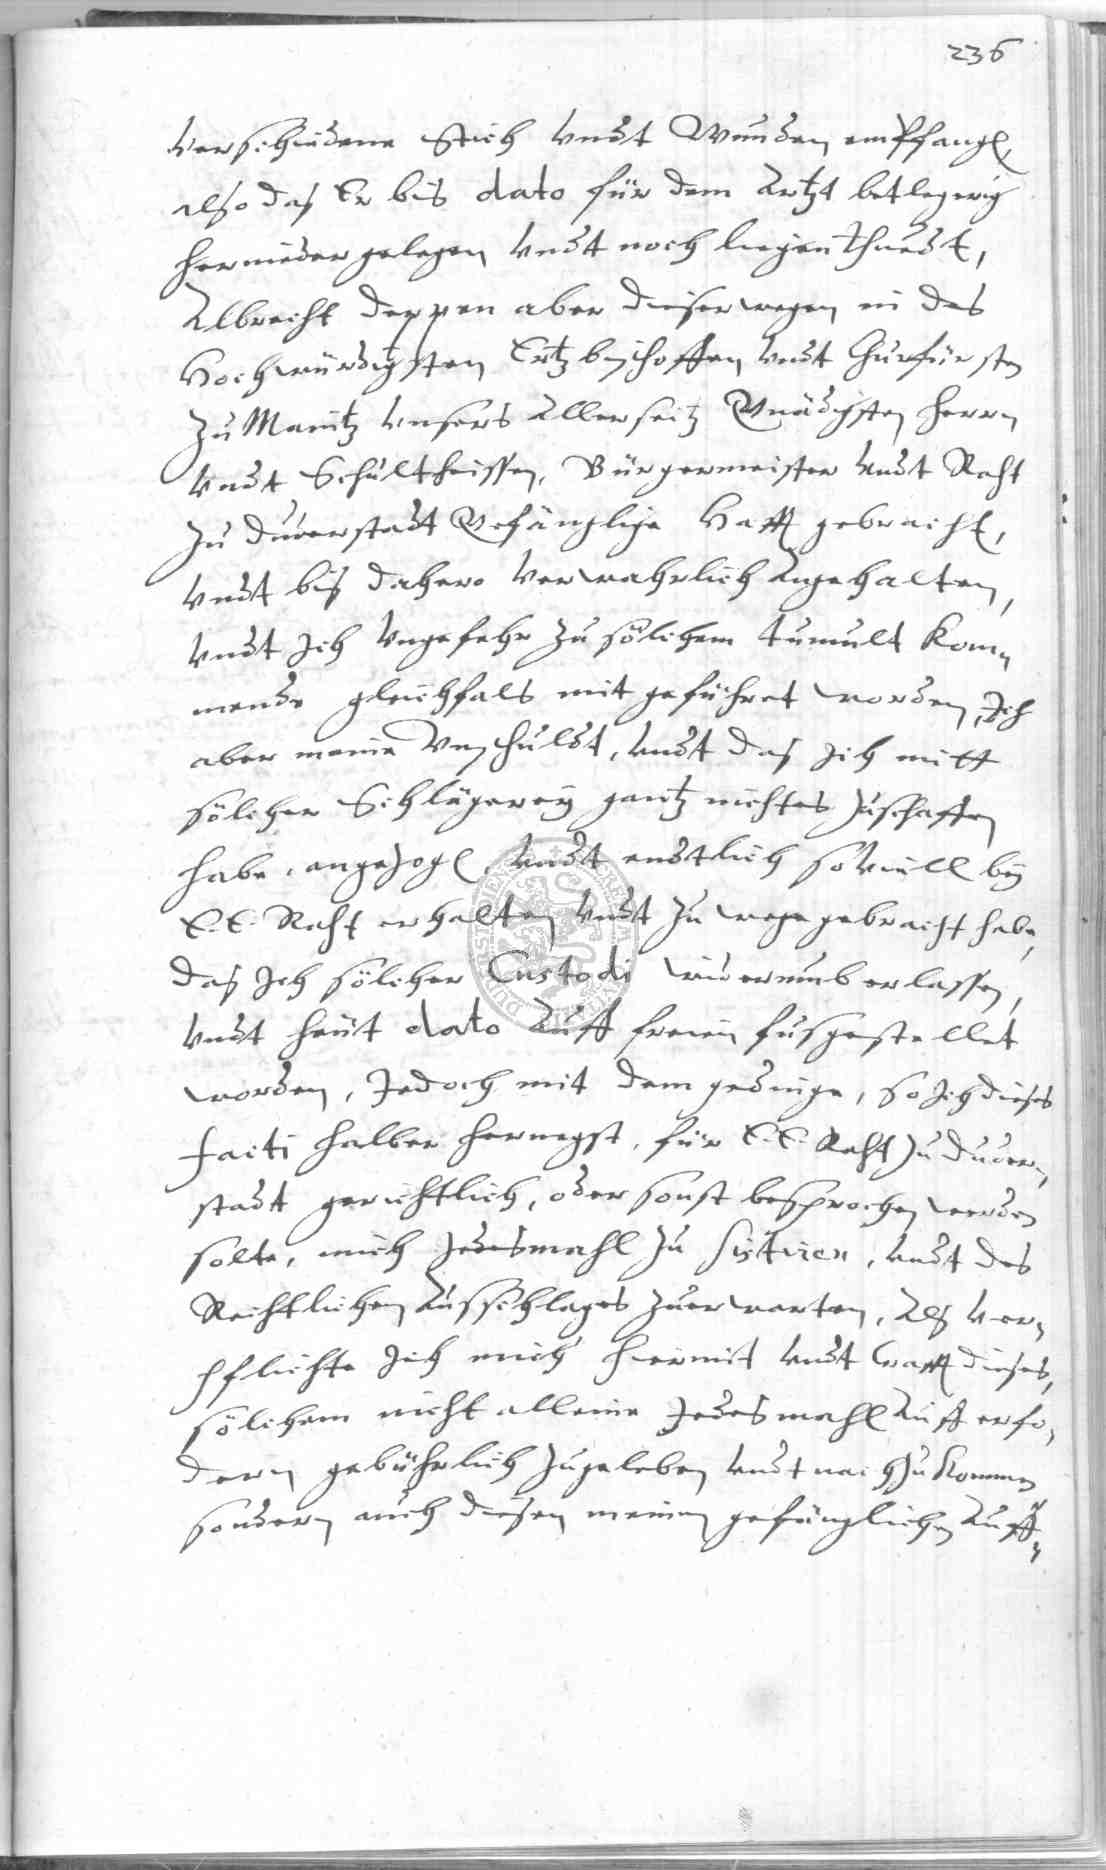 236
verschiedene Stich vndt Wunden empffang[en],
also das Er bis dato für dem Artzt betlegerig
hernieder gelegen vndt noch liegen thuedt,
Albrecht Deppen aber dieserwegen in des
Hochwürdigsten Ertzbischoffen vndt Churfürsten
zu Maintz vnsers Allerseitz Gnädigsten Herrn
vndt Schultheissen, Bürgermeister vndt Raht
zu Duderstadt Gefänglige Hafft gebracht,
vndt bis dahero verwahrlich Angehalten,
vndt Ich vngefehr zu sölichem tumult kom¬
mende gleichfals mit geführet worden, Ich
aber meine Vnschuldt, vndt das Ich mitt
sölcher Schlägerey gantz nichtes zuschaffen
habe, angezog[en], vndt endtlich so viell bey
E. E. Raht erhalten vndt zu wege gebracht habe,
das Ich sölcher Custodi widerumb erlassen,
vndt heut dato Auff freien fus gestellet
worden, Jedoch mit dem gedinge, so Ich dieses
facti halber hernegst, für E. E. Raht zu Duder¬
stadt gerichtlich, oder sonst besprochen werden
solte, mich Jedesmahl zu sistiren, vndt des
Rechtlichen Ausschlages zuerwarten, Als ver¬
pflichte Ich mich hiermit vndt Crafft dieses,
sölichem nicht alleine Jedesmahl Auff erfo¬
dern gebührlich zugeleben vndt nachzukommen
sondern auch diesen meinen gefänglichen Auff¬